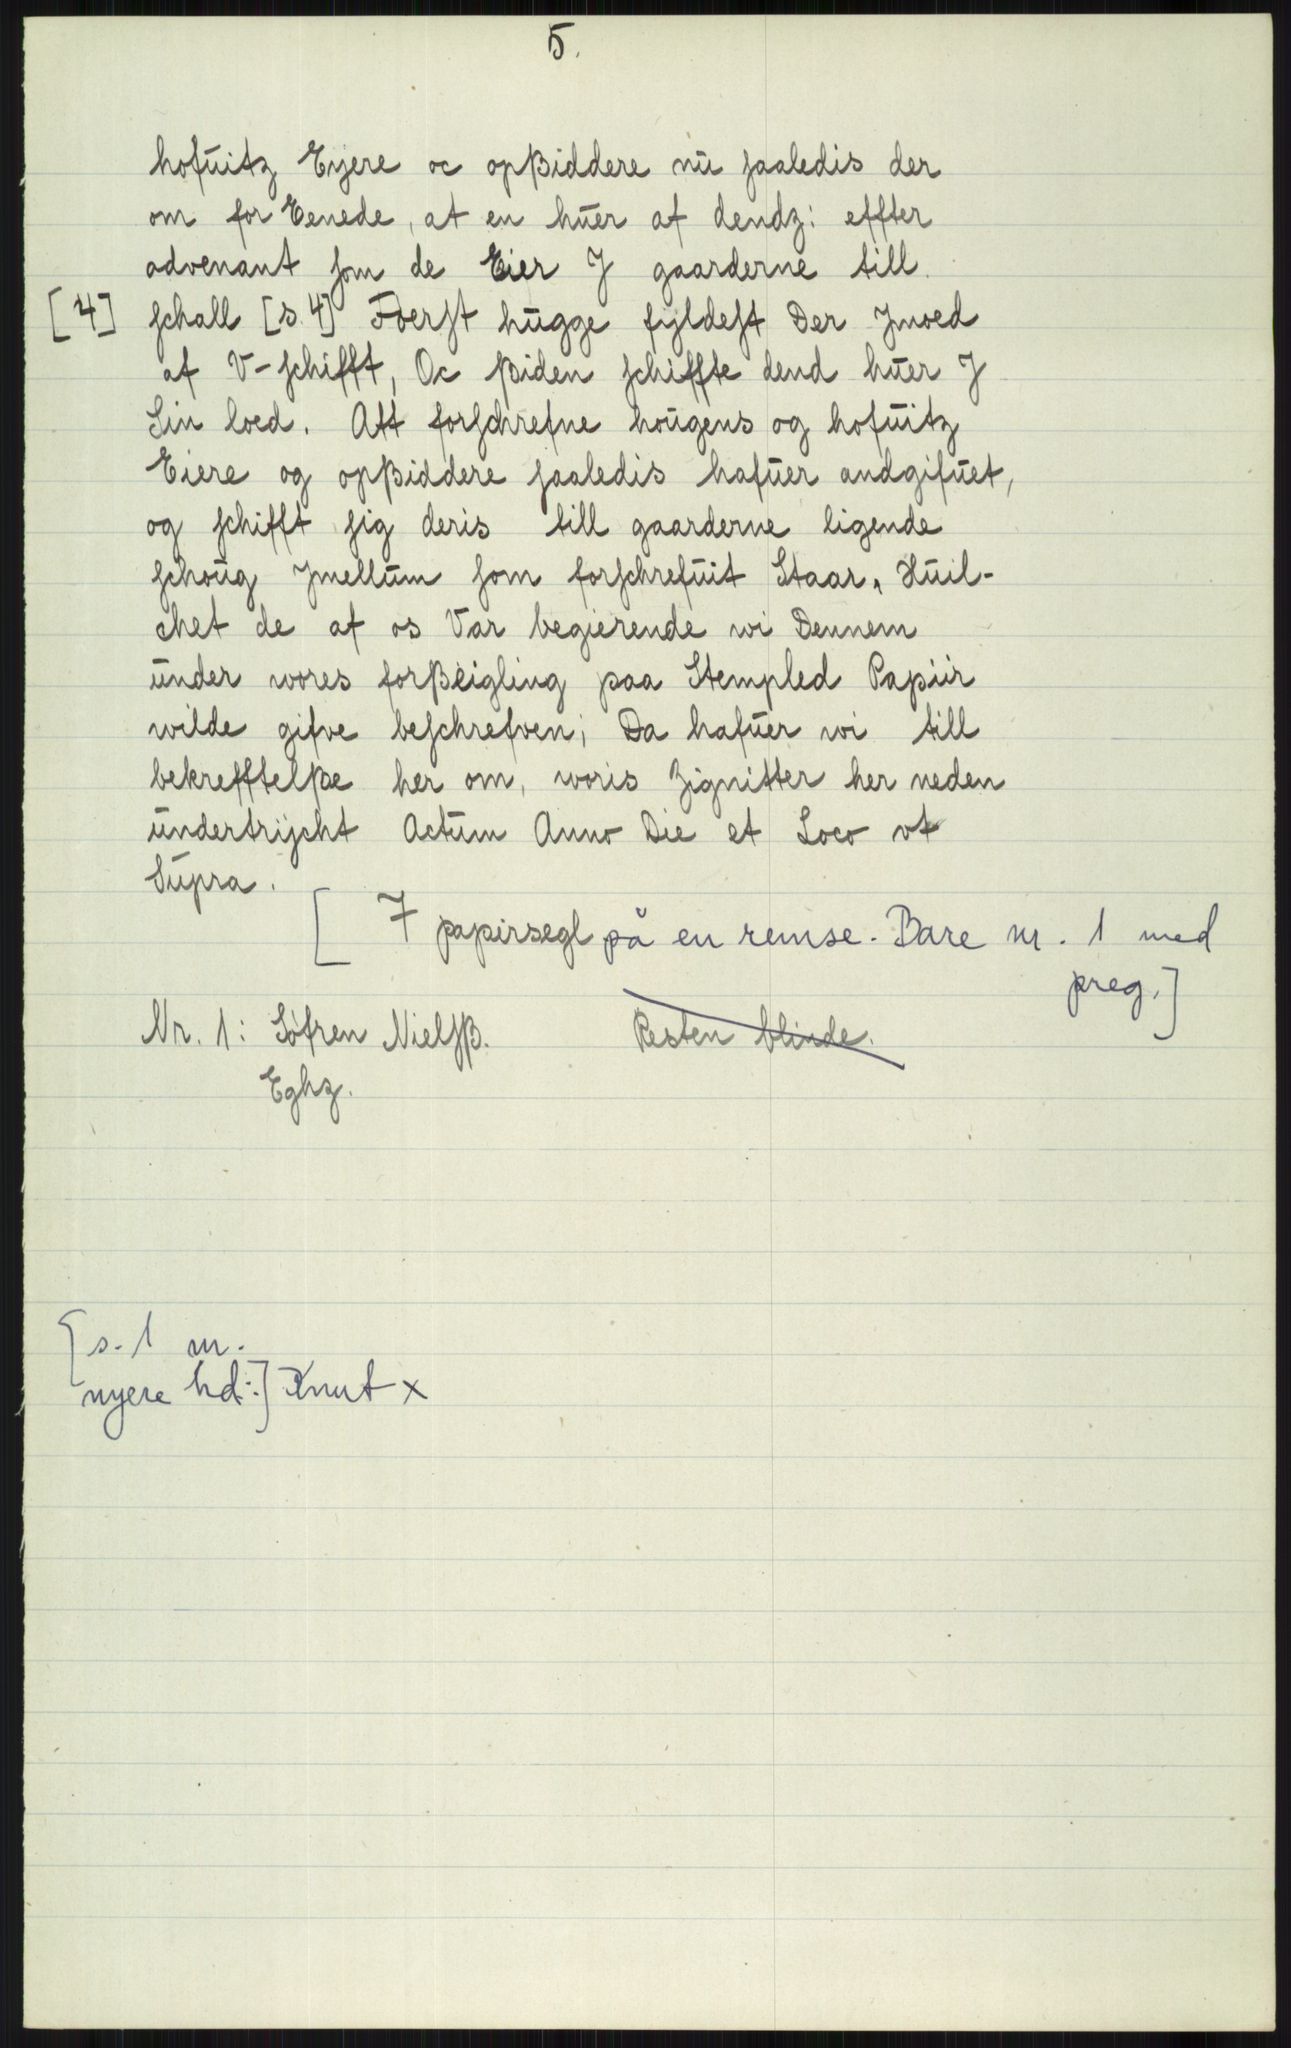 5.
hofuitz Eyere oc opßiddere nu saaledis der
om for Eenede, at en huer af dendz: effter
advenant som de Eier J gaarderne till
[4] schall [s.4] Foerst hugge fyldest Der Jmoed
af V-schifft, Oc ßiden schiffte dend huer J
Sin loed. Att forschrefne hougens og hofuitz
Eiere og opßiddere saaledis hafuer andgifuet,
og schifft sig deris till gaarderne ligende
schoug Jmellum som forschrefuit Staar, Huil-
chet de af os Var begierende wi Dennem
under wores forßeigling paa Stempled Papiir
wilde gifve beschrefven; Da hafuer wi till
bekrefftelße her om, woris Zignitter her neden
undertrijcht Actum Anno Die et Loco vt
Supra.
[ 7 papirsegl på en remse. Bare nr. 1 med
preg.]
Nr. 1: Søfren Nielsß. Resten blinde.
Eghz.
[s. 1 m.
nyere hd:] Knut x